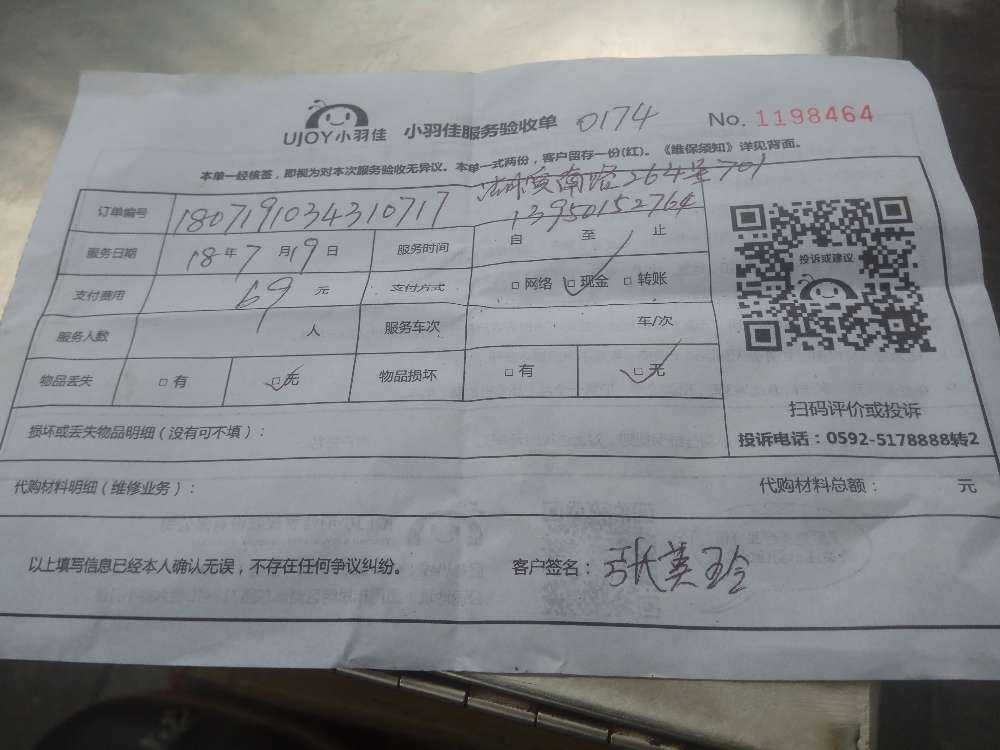 UJOY小羽佳 小羽佳服务验收单 0174 No. 1198464
本单一经核签，即视为对本次服务验收无异议。本单一式两份，客户留存一份(红)。《维保须知》详见背面。
南路264号701
订单编号 180719103431071​7 13950152764
服务日期 18年7月19日 服务时间 自 至 止
支付费用 69元 支付方式 □网络 □现金 □转账
服务人数 人 服务车次 车/次
物品丢失 □有 □无 物品损坏 □有 □无
投诉或建议
扫码评价或投诉
投诉电话：0592-5178888转2
损坏或丢失物品明细（没有可不填）：
代购材料明细（维修业务）： 代购材料总额： 元
以上填写信息已经本人确认无误，不存在任何争议纠纷。 客户签名：张美玲